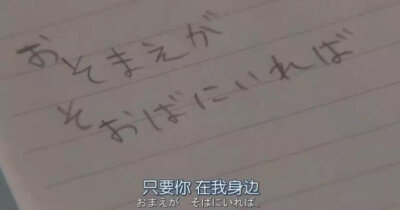 おそまえが
そおばにいれば
只要你 在我身边
おまえが　そばにいれば。